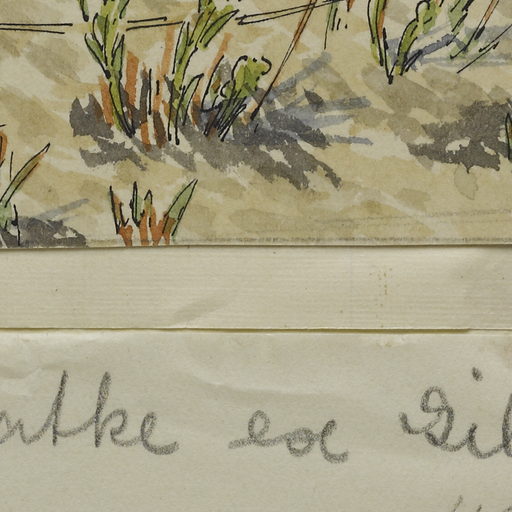 atke ex Gil